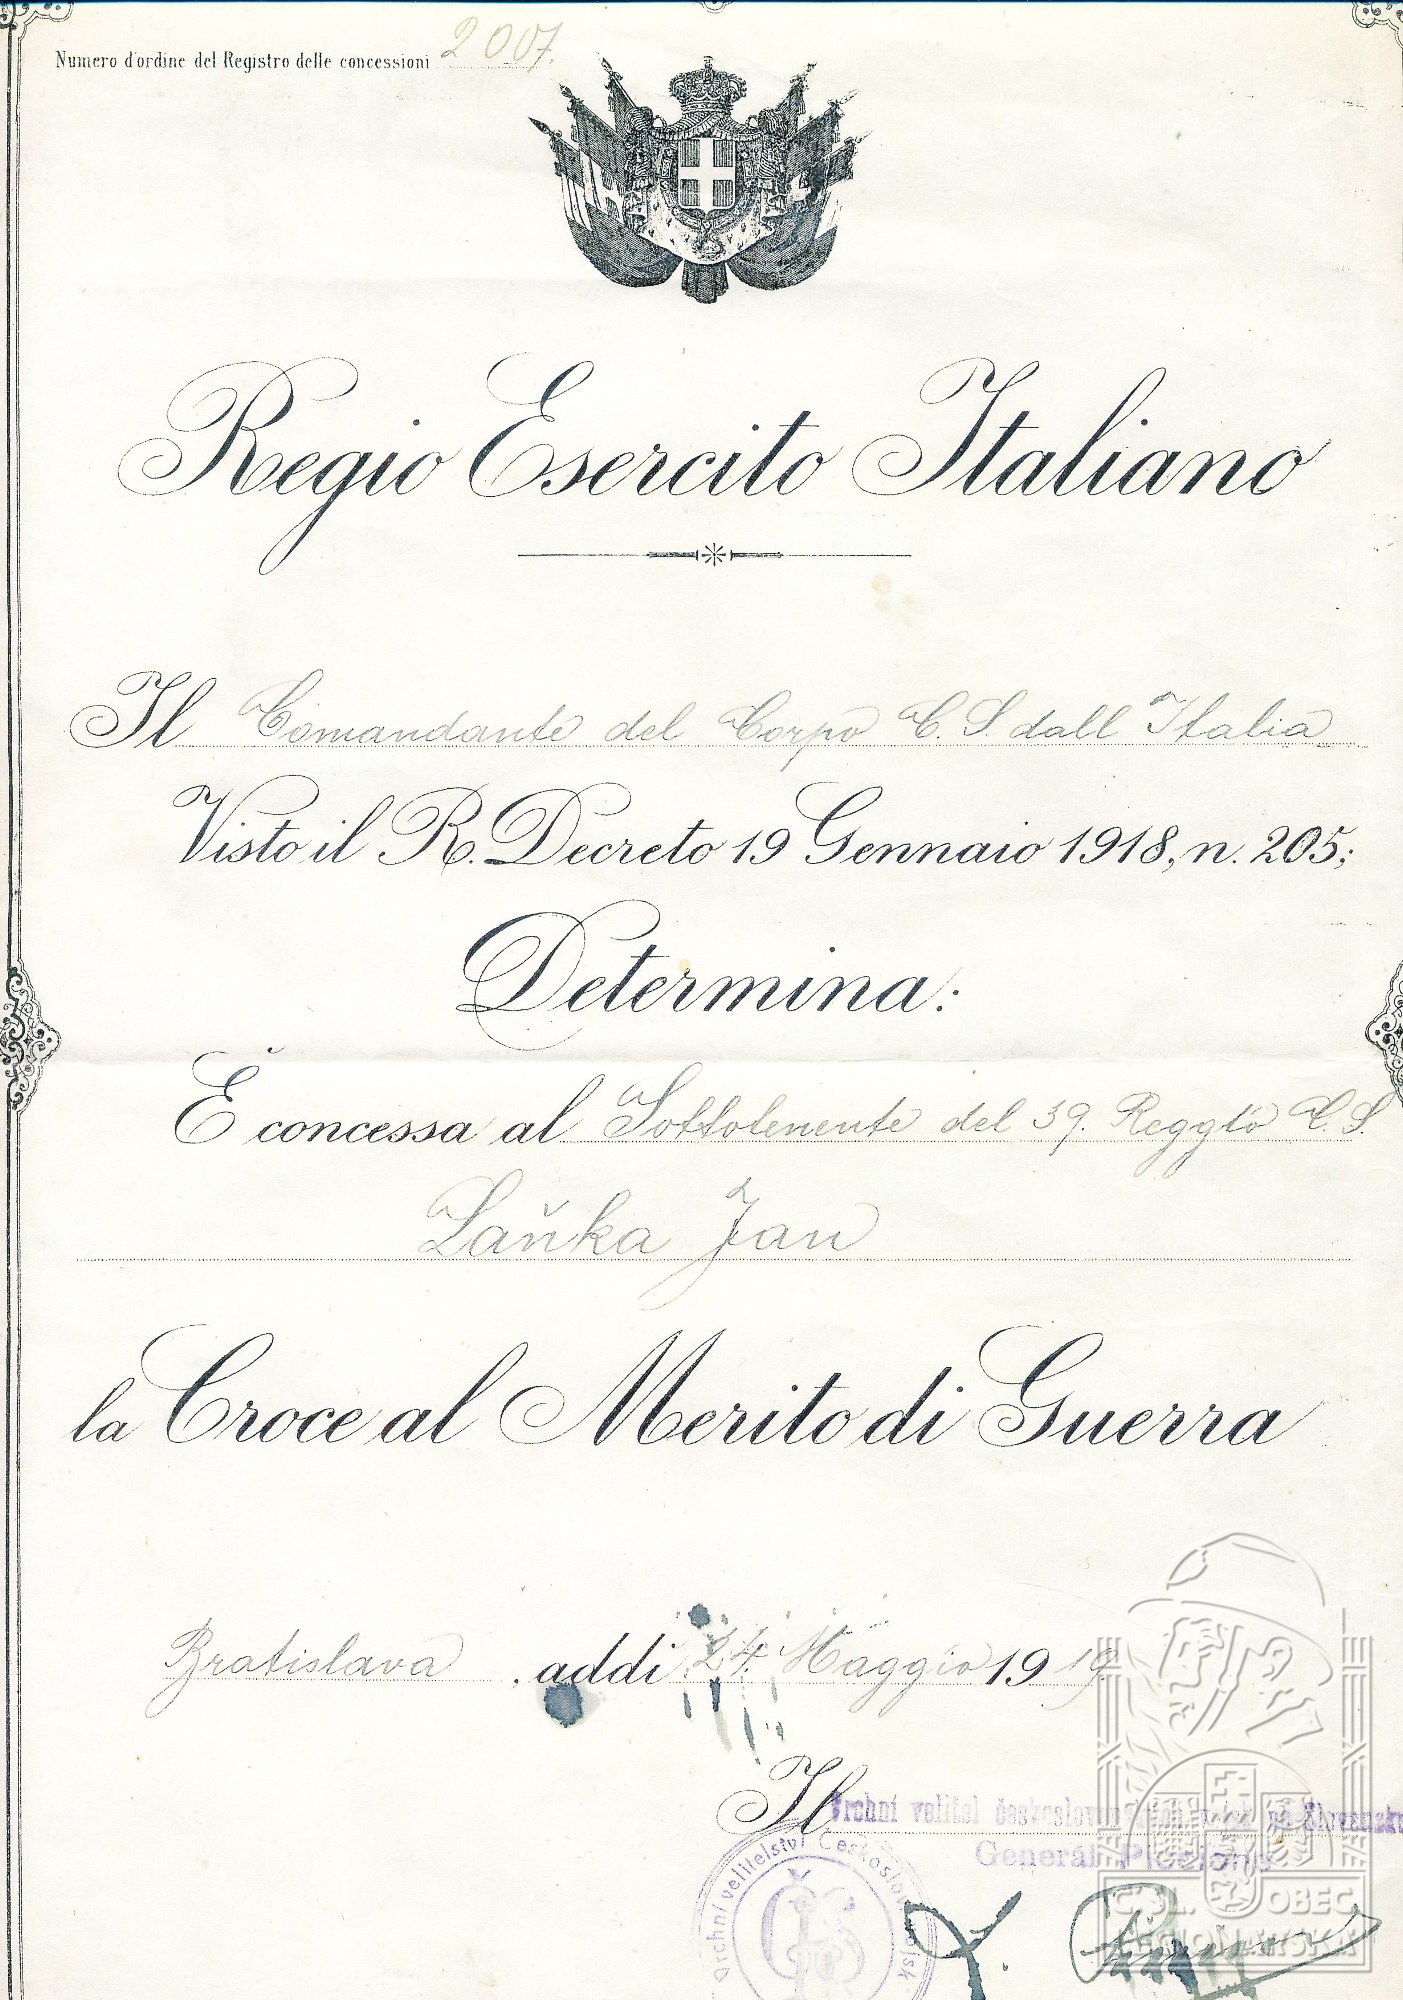 Numero d'ordine del Registro delle concessioni 2007.
Regio Esercito Italiano
Il Comandante del Corpo C. S. dall Italia
Visto il R. Decreto 19 Gennaio 1918, n. 205;
Determina:
È concessa al Sottotenente del 39. Reggto C. S.
Laňka Jan
la Croce al Merito di Guerra
Bratislava, addi 24. Maggio 1919.
Il Vrchní velitel československých vojsk na Slovensku
Generál Piccione
Vrchní velitelství Československých vojsk
ČS
L. Piccione
ČSL. OBEC
LEGIONÁŘSKÁ